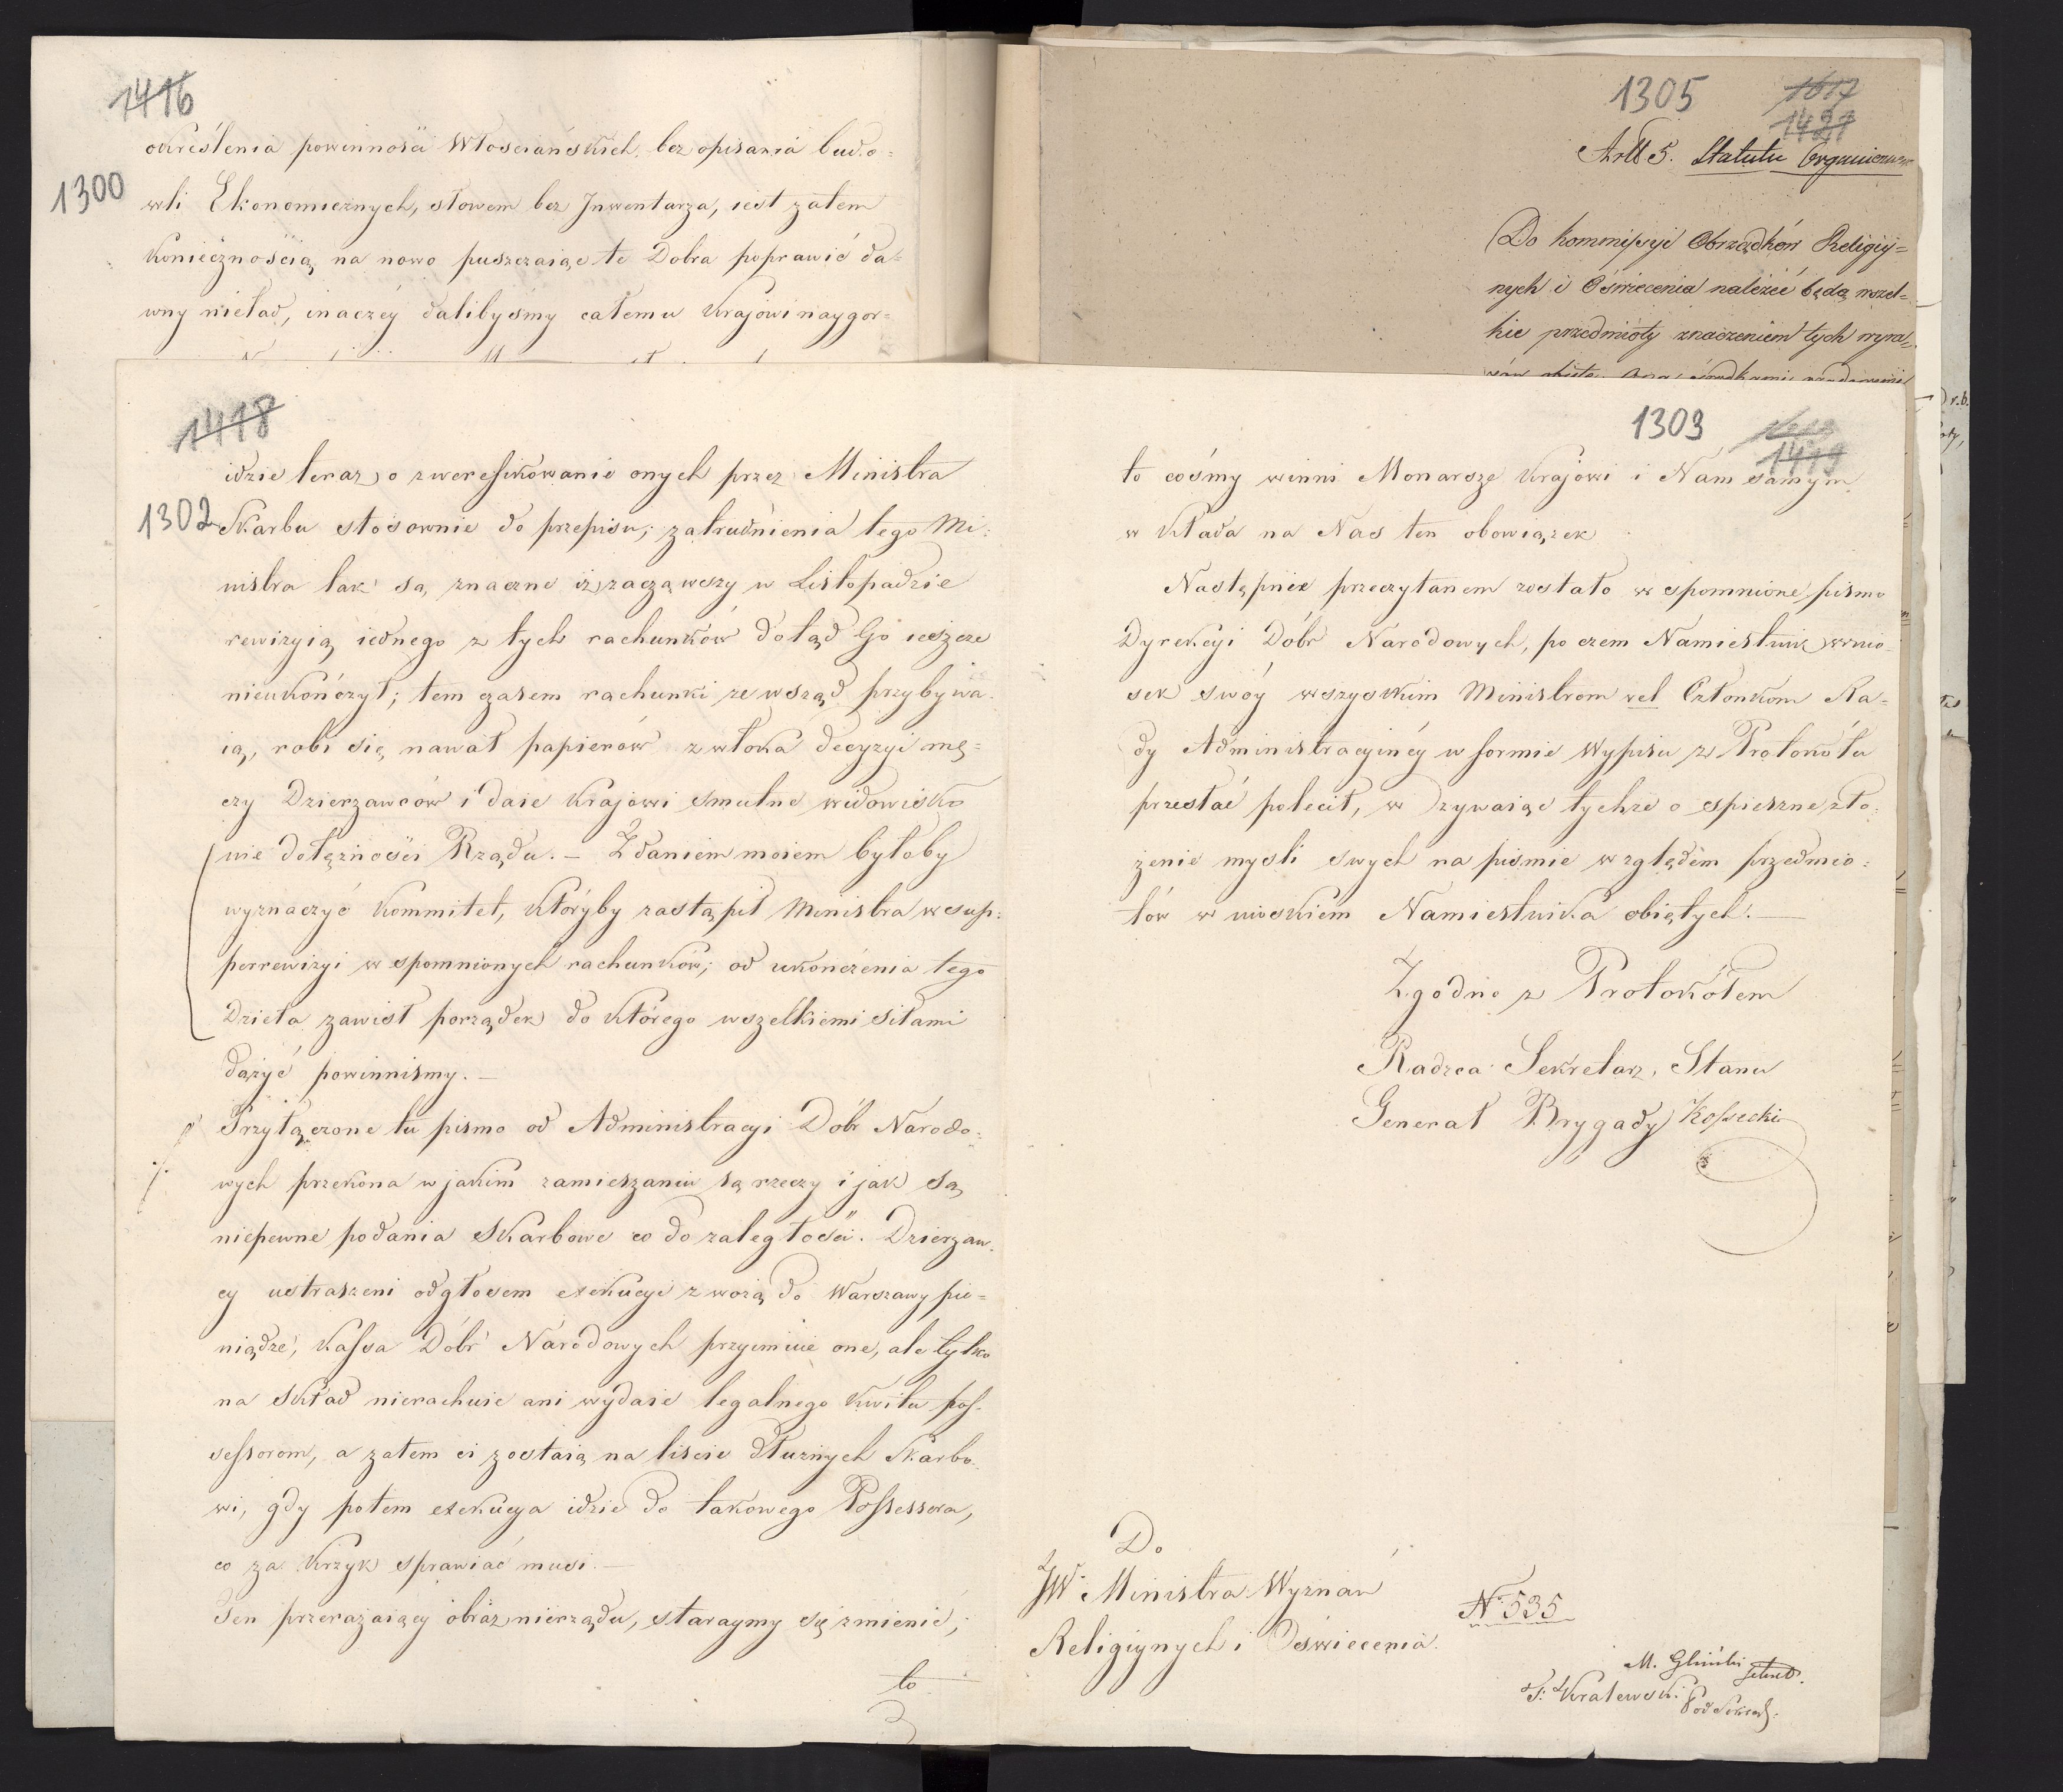 1416
okréslenia powinności Włosciańskich, bez opisania budo=
1300
wli Ekonomicznych, słowem bez Jnwentarza, iest zatem
koniécznością na nowo puszczaiąc te Dobra poprawić da=
wny nieład, inaczéy dalibyśmy całemu Krajowi naygor=
1305
1617
1421
Art 5. Statutu Organicznego
Do kommissyi Obrządków Religiy=
nych i Oświecenia należéć będą wszel=
kie przedmioty znaczeniem tych wyra=
1418
idzie teraz o zweresikowanie onych przez Ministra
1302
Skarbu stósownie do przepisu; zatrudnienia tego Mi=
nistra tak są znaczne iż zacząwszy w Listopadzie
rewizyią iednego z tych rachunków dotąd Go ieszcze
nieukończył; tem czasem rachunki ze wsząd przybywa=
ią, robi się nawał papierów zwłoka decyzyi mę=
czy Dzierzawców i daie Krajowi smutne widowisko
nie dołężności Rządu. – Zdaniem moiem byłoby
wyznaczyć Kommitet, któryby zastąpił Ministra w sup=
perrewizyi w spomnionych rachunków; od ukończenia tego
Dzieła zawisł porządek do którego wszelkiemi siłami
dążyć powinnismy. –
Przyłączone tu pismo od Administracyi Dóbr Narodo=
wych przekona w jakim zamieszaniu są rzeczy i jak są
niepewne podania Skarbowe co do zaległości. Dzierzaw=
cy ustraszeni odgłosem exekucyi zwożą do Warszawy pie=
niądze, Kassa Dóbr Narodowych przyimuie one, ale tylko
na Skład nierachuie ani wydaie legalnego Kwitu pos=
sessorom, a zatem ci zostaią na liscie dłużnych Skarbo=
wi, gdy potem exekucya idzie do takowego Possessora,
co za Krzyk sprawiać musi. –
Ten przerażaiący obraz nierządu, staraymy się zmienić;
to
1303
1419
to cośmy winni Monarsze Krajowi i Nam samym
w Kłada na Nas ten obowiązek
Następnie przeczytanem zostało w spomnione pismo
Dyrekcyi Dóbr Narodowych, po czem Namiestnik wnio=
sek swóy wszystkim Ministrom vel Członkom Ra=
dy Administracyinéy w formie Wypisu z Protokółu
przesłać polecił, w zywaiąc tychże o spieszne zło=
żenie mysli swych na pismie względem przedmio=
tów w nioskiem Namiestnika obiętych. –
Zgodno z Protokółem
Radzca Sekretarz Stanu
Generał Brygady Kossecki
Do
JW. Ministra Wyznań
Religiynych i Oświecenia.
N. 535
M. Gliński Sekret.
F: Kralewski Pod Sekret.